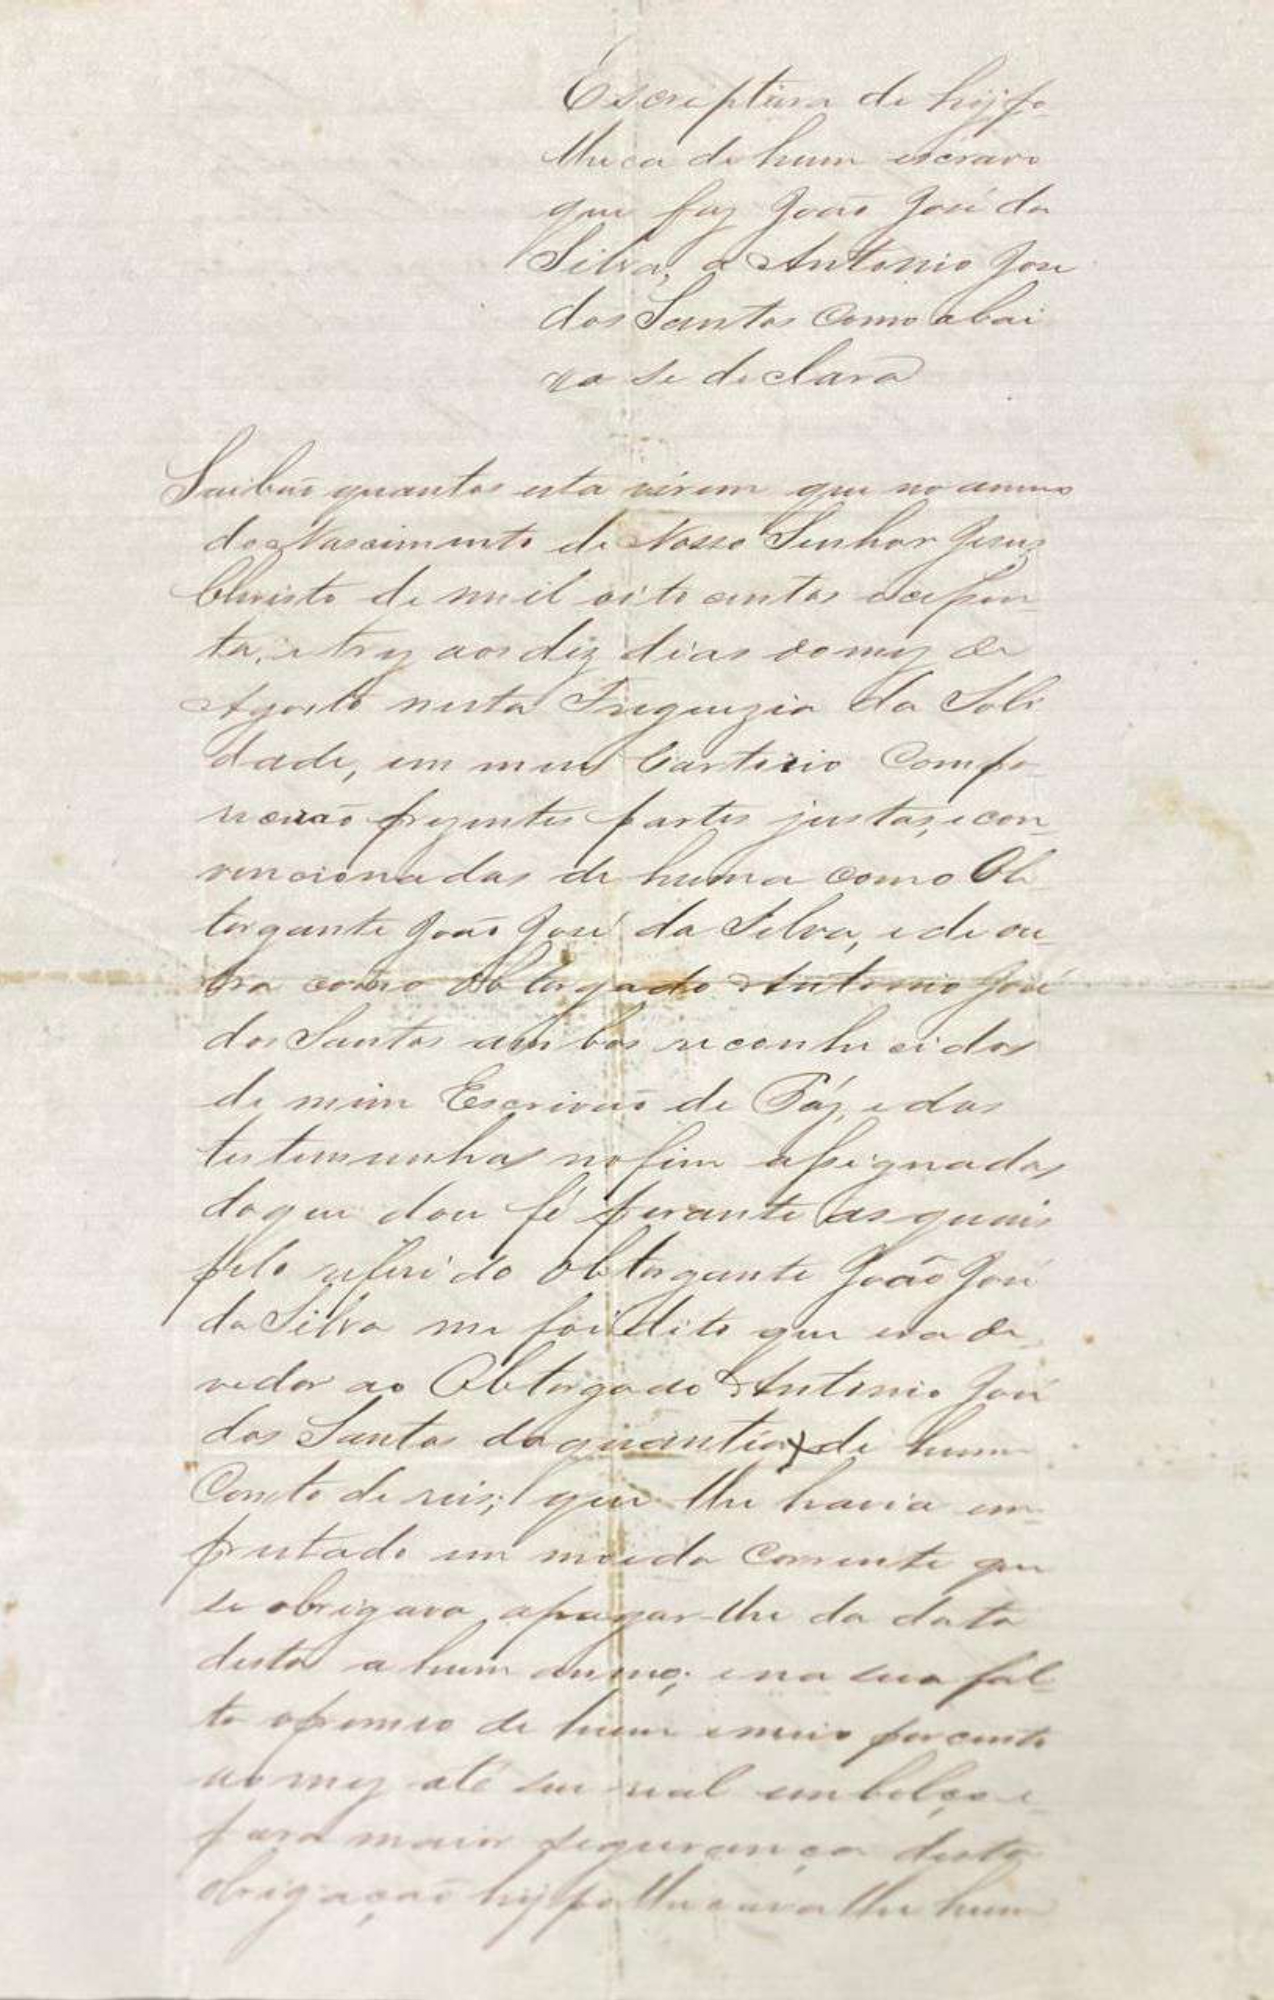 Escreptura de hijpo
theca de hum escravo
que faz João José da
Silva, a Antonio Jose
dos Santos como abai
xo se declara
Saibaõ quantos esta virem que no anno
do Nascimento de Nosso Senhor Jesus
Christo de mil oito centos e cessen
ta, e trez aos diz dias do mez de
Agosto nesta Freguezia da Soli
dade, em meu Cartorio Compa
recerão prezentes partes justas, e con
vencionadas de huma como Ob
torgante João José da Silva, e de ou
tra como Obtorgado Antonio José
dos Santos ambos reconhecidos
de mim Escrivaõ de Páz, e das
testemunhas no fim assignadas
do que dou fé perante as quais
pelo referido Obtorgante João José
da Silva me foi dito que era de
vedor ao Obtorgado Antonio José
dos Santos da quantia de hum
Conto de reis; que lhe havia em
prestado em moeda Corrente que
se obrigava a pagar-lhe da data
desta a hum anno; e na sua fal
ta o premio de hum e meio por cento
ao mez até seu real embolço e
para maior segurança desta
obrigação hijpothecava lhe hum